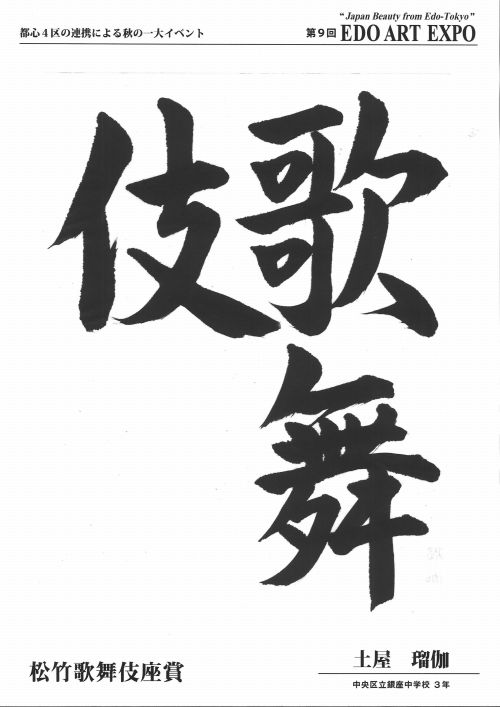 都心4区の連携による秋の一大イベント
“Japan Beauty from Edo-Tokyo”
第9回 EDO ART EXPO
歌舞
伎
松竹歌舞伎座賞
土屋 瑠伽
中央区立銀座中学校 3年